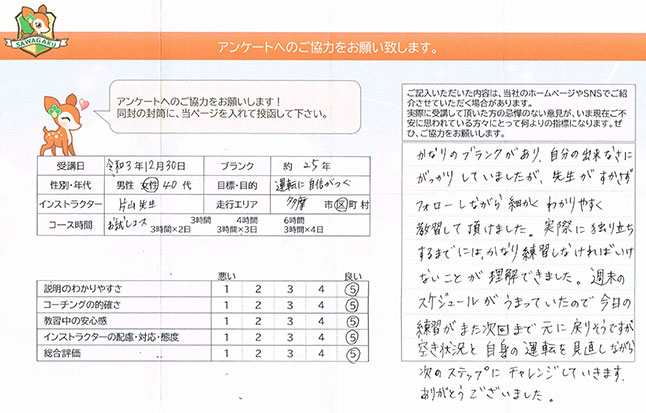 SAWAGAKU
アンケートへのご協力をお願い致します。
アンケートへのご協力をお願いします！
同封の封筒に、当ページを入れて投函して下さい。
受講日 令和3年12月30日 ブランク 約 25 年
性別・年代 男性 女性 40 代 目標・目的 運転に自信がつく
インストラクター 片山先生 走行エリア 多摩 市 区 町 村
コース時間 お試しコース 3時間 4時間 6時間
3時間×2日 3時間×3日 3時間×4日
悪い 良い
説明のわかりやすさ 1 2 3 4 5
コーチングの的確さ 1 2 3 4 5
教習中の安心感 1 2 3 4 5
インストラクターの配慮・対応・態度 1 2 3 4 5
総合評価 1 2 3 4 5
ご記入いただいた内容は、当社のホームページやSNSでご紹
介させていただく場合があります。
実際に受講して頂いた方の忌憚のない意見が、いま現在ご不
安に思われている方々にとって何よりの指標になります。ぜ
ひ、ご協力をお願いします。
かなりのブランクがあり、自分の出来なさに
がっかりしていましたが、先生がすかさず
フォローしながら細かくわかりやすく
教習して頂けました。実際に独り立ち
するまでには、かなり練習しなければいけ
ないことが理解できました。週末の
スケジュールがうまっていたので今日の
練習がまた次回まで元に戻りそうですが
空き状況と自身の運転を見直しながら
次のステップにチャレンジしていきます。
ありがとうございました。